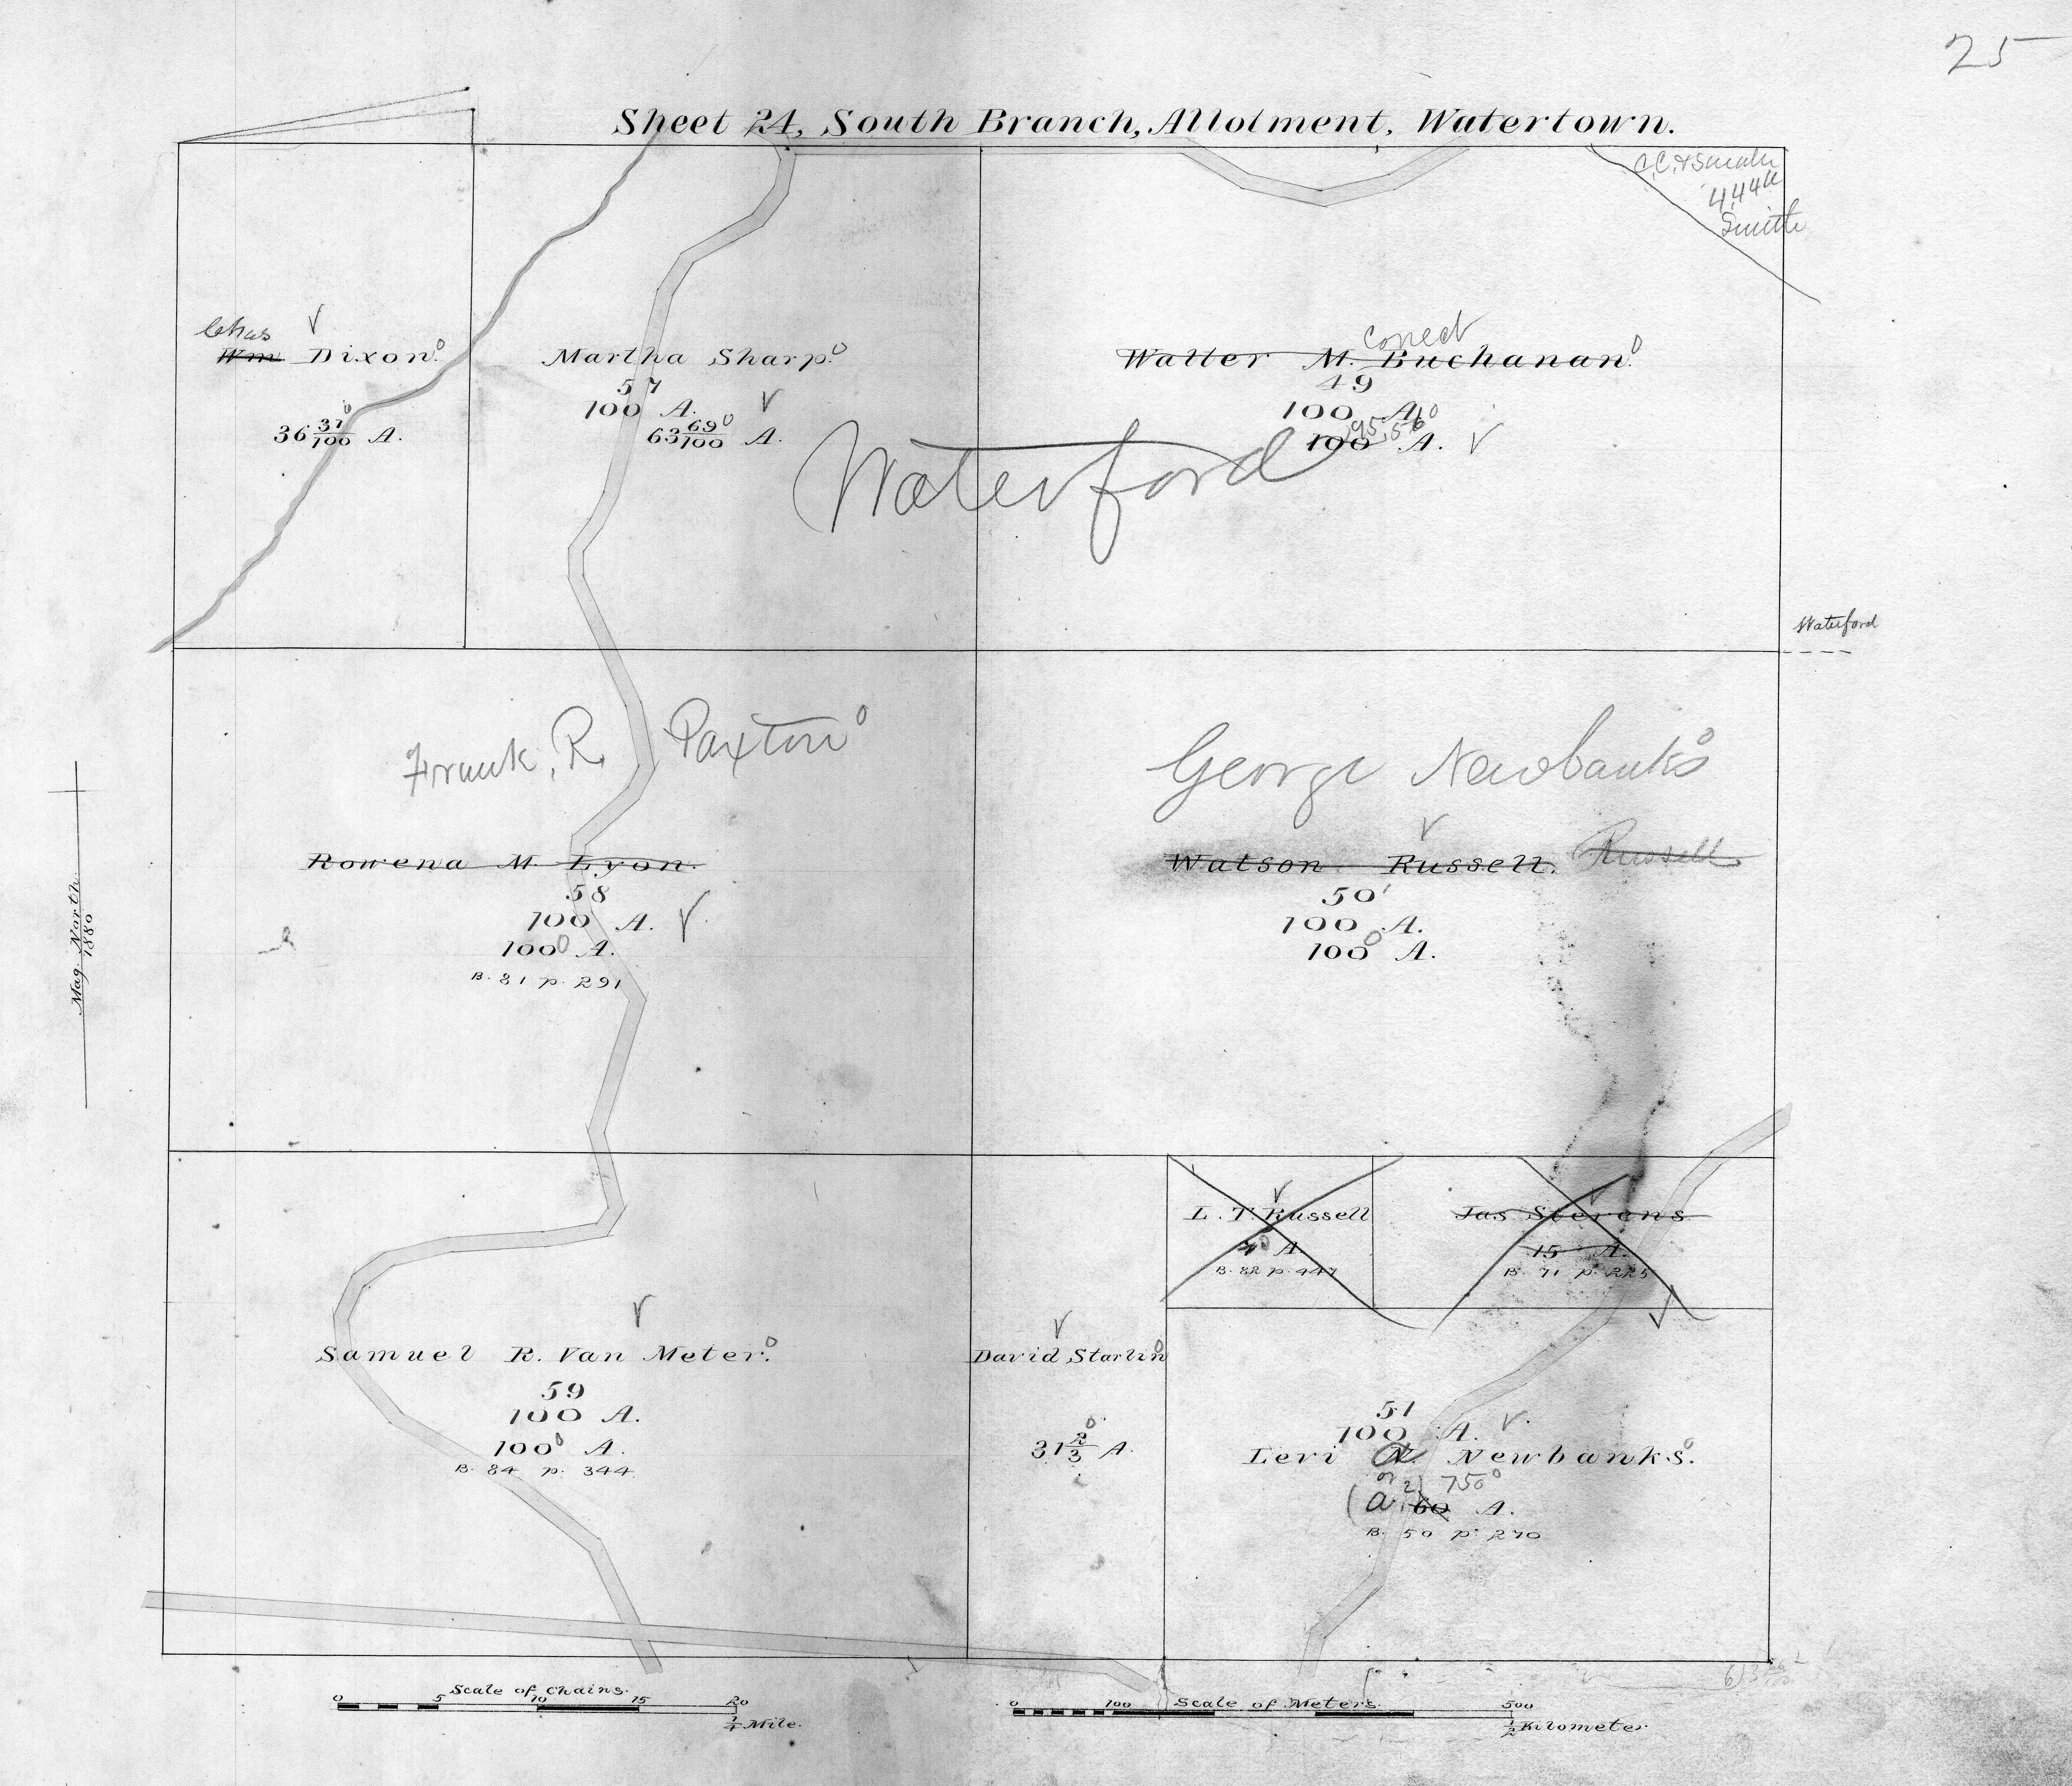 25
Sheet 24, South Branch, Allotment, Watertown.
4,44a
Smith
Chas
Wm Dixon.
36 37/100 A.
Martha Sharp.
57
100 A.
63 69/100 A.
Correct
Walter M. Buchanan.
49
100 A.
95,56
100 A.
Waterford
Waterford
Frank, R. Paxton
Rowena M. Lyon.
58
100 A.
100 A.
B. 81 p. 291
George Newbanks
Watson Russell. Russell
50
100 A.
100 A.
Mag. North.
1880
L. T. Russell
A.
B. 82 p. 447
Jas Stevens
15 A.
B. 71 p. 225
Samuel R. Van Meter.
59
100 A.
100 A.
B. 84 p. 344
David Starlin
31 2/3 A.
51
100 A.
Levi N. Newbanks.
or
(a 2) 750
60 A.
B. 50 p. 270
Scale of Chains.
0 5 10 15 20
1/4 Mile.
Scale of Meters.
0 100 500
1/2 Kilometer